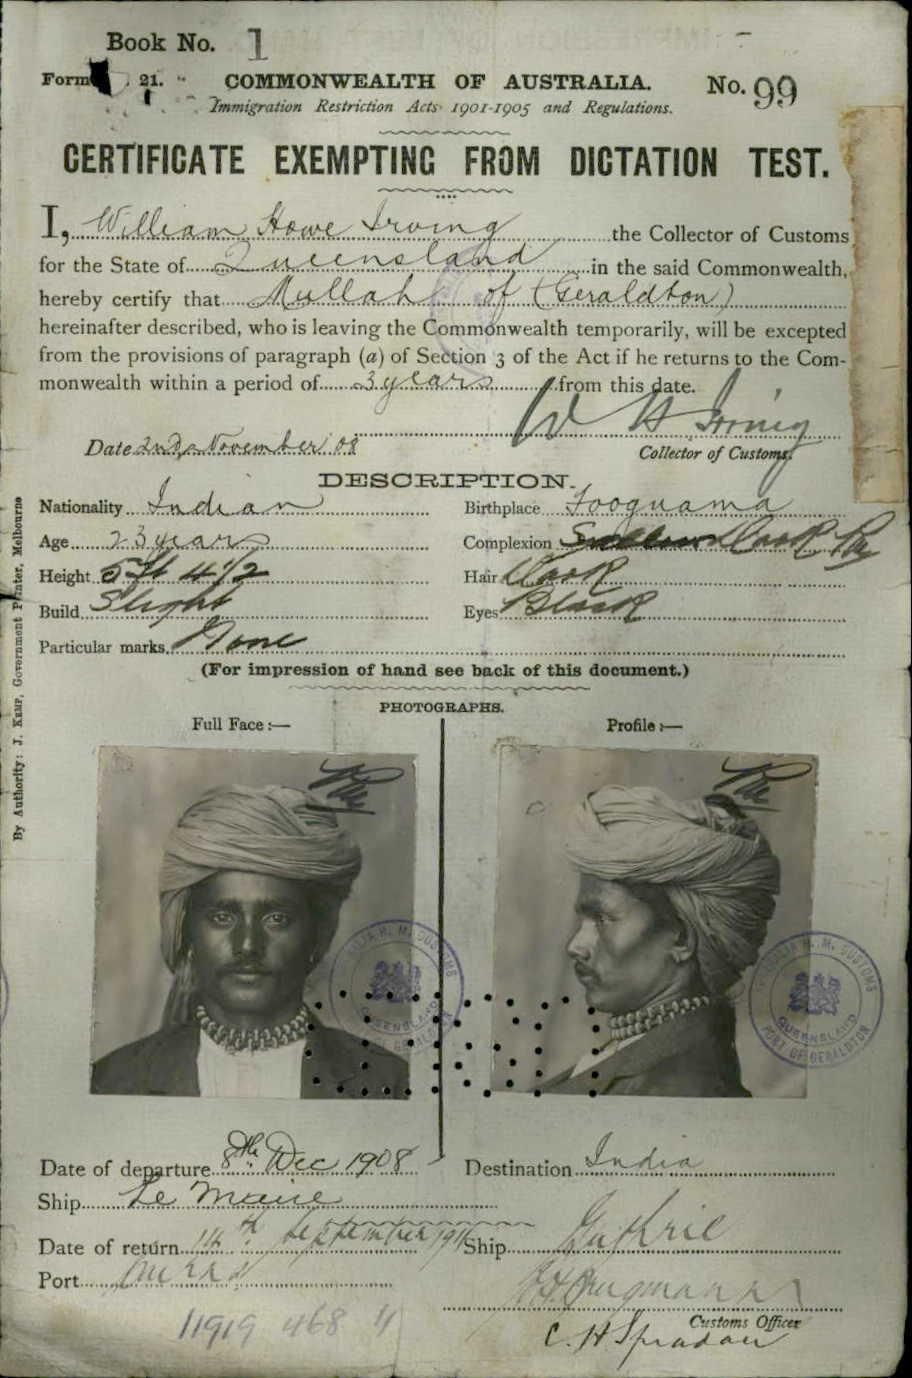 Book No. 1
Form 21.
COMMONWEALTH OF AUSTRALIA. No. 99
Immigration Restriction Acts 1901-1905 and Regulations.
CERTIFICATE EXEMPTING FROM DICTATION TEST.
I, William Howe Irving the Collector of Customs
for the State of Queensland in the said Commonwealth,
hereby certify that Mullah of (Geraldton)
hereinafter described, who is leaving the Commonwealth temporarily, will be excepted
from the provisions of paragraph (a) of Section 3 of the Act if he returns to the Com-
monwealth within a period of 3 years from this date.
W H Irving
Date 2nd November 08
Collector of Customs.
DESCRIPTION.
Nationality Indian Birthplace
Age 23 years Complexion Dark
Height 5 ft 4 1/2 Hair Dark
Build Slight Eyes Black
Particular marks None
(For impression of hand see back of this document.)
PHOTOGRAPHS.
Full Face :— Profile :—
H. M. CUSTOMS
QUEENSLAND
PORT OF GERALDTON
H. M. CUSTOMS
QUEENSLAND
PORT OF GERALDTON
Date of departure 8th Dec 1908 Destination India
Ship Le Maire
Date of return 14th September 1911 Ship Guthrie
Port
Customs Officer
C. H
11919 468
By Authority: J. KEMP, Government Printer, Melbourne